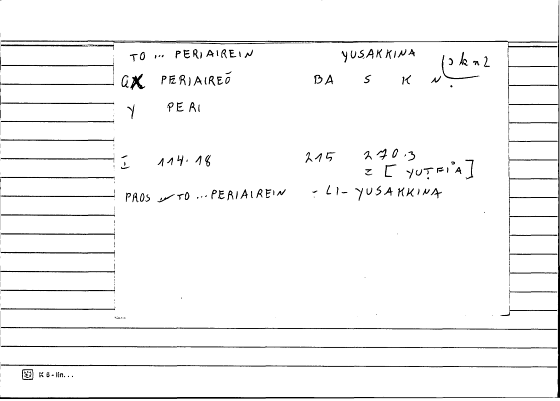 TO ... PERIAIREIN YUSAKKINA
GX PERIAIREŌ BA S K N
Y PERI
I 114.18 215 270.3
= [YUTFIA]
PROS TO ... PERIAIREIN - LI- YUSAKKINA
K 6 - lin...